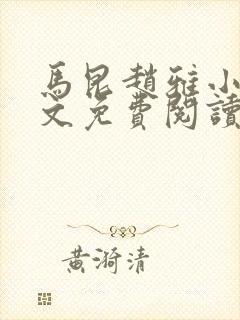 馬昆趙雅小
文免費閱讀
黃漪清